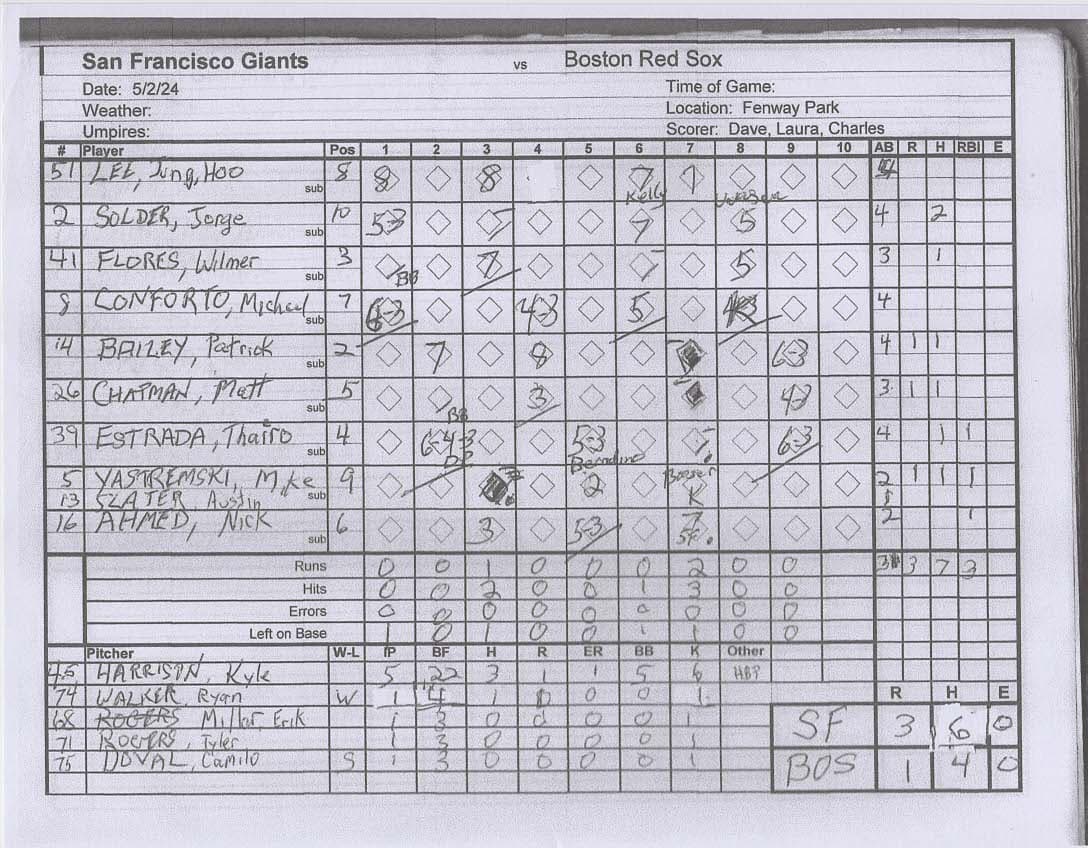 San Francisco Giants vs Boston Red Sox
Date: 5/2/24 Time of Game:
Weather: Location: Fenway Park
Umpires: Scorer: Dave, Laura, Charles
# Player Pos 1 2 3 4 5 6 7 8 9 10 AB R H RBI E
51 LEE, Jung, Hoo 8 8 8 7 7 4
sub Kelly
2 SOLDER, Jorge 10 5-3 7 7 5 4 2
sub
41 FLORES, Wilmer 3 BB 7 7 5 3 1
sub
8 CONFORTO, Michael 7 6-3 4-3 5 4
sub
14 BAILEY, Patrick 2 7 8 7 6-3 4 1 1
sub
26 CHAPMAN, Matt 5 BB 3 43 3 1 1
sub
39 ESTRADA, Thairo 4 6-4-3 DP 5-3 7 6-3 4 1 1
sub Bernardino
5 YASTREMSKI, Mike 9 2 K 2 1 1 1
13 SLATER, Austin sub
16 AHMED, Nick 6 3 5-3 7 SF 2 1
sub
Runs 0 0 1 0 0 0 2 0 0 3 7 3
Hits 0 0 2 0 0 1 3 0 0
Errors 0 0 0 0 0 0 0 0 0
Left on Base 1 0 1 0 0 1 1 0 0
Pitcher W-L IP BF H R ER BB K Other
45 HARRISON, Kyle 5 22 3 1 1 5 6 HBP
74 WALKER, Ryan W 1 4 1 0 0 0 1
68 ROGERS Miller, Erik 1 3 0 0 0 0 1
71 ROGERS, Tyler 1 3 0 0 0 0 1
75 DOVAL, Camilo S 1 3 0 0 0 0 1
R H E
SF 3 6 0
BOS 1 4 0